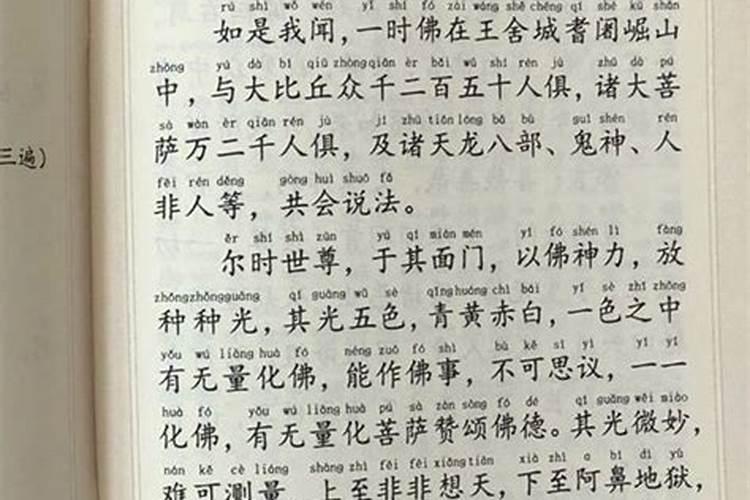 rú shì wǒ wén yī shí fó zài wáng shě chéng qí shé kū shān
如是我闻，一时佛在王舍城耆阇崛山
zhōng yú dà bǐ qiū zhòng qiān èr bǎi wǔ shí rén jù zhū dà pú
中，与大比丘众千二百五十人俱，诸大菩
sà wàn èr qiān rén jù jí zhū tiān lóng bā bù guǐ shén rén
萨万二千人俱，及诸天龙八部、鬼神、人
三遍）
fēi rén děng gòng huì shuō fǎ
非人等，共会说法。
ěr shí shì zūn yú qí miàn mén yǐ fó shén lì fàng
尔时世尊，于其面门，以佛神力，放
zhǒng zhǒng guāng qí guāng wǔ sè qīng huáng chì bái yī sè zhī zhōng
种种光，其光五色，青黄赤白，一色之中
yǒu wú liàng huà fó néng zuò fó shì bù kě sī yì yī yī
有无量化佛，能作佛事，不可思议，一一
huà fó yǒu wú liàng huà pú sà zàn sòng fó dé qí guāng wēi miào
化佛，有无量化菩萨赞颂佛德。其光微妙，
nán kě cè liáng shàng zhì fēi fēi xiǎng tiān xià zhì ā bí dì yù
难可测量，上至非非想天，下至阿鼻地狱，